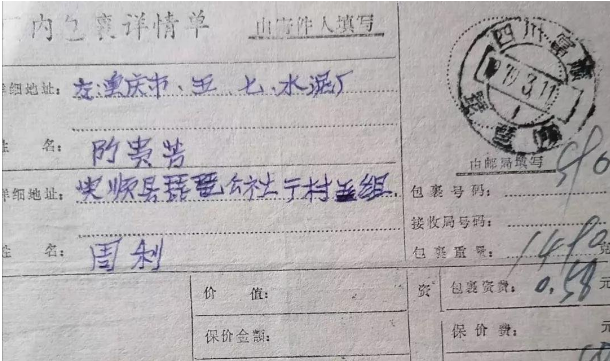 国内包裹详情单 由寄件人填写
详细地址：重庆市、五 七、水泥厂
姓 名：陶贵芳
四川富顺
1979.3.11
由邮局填写
详细地址：富顺县琵琶公社 村五组
包裹号码：
接收局号码：
姓 名：周利
包裹重量：1490 克
价 值： 资 包裹资费：0.58 元
保价金额： 保价费： 元